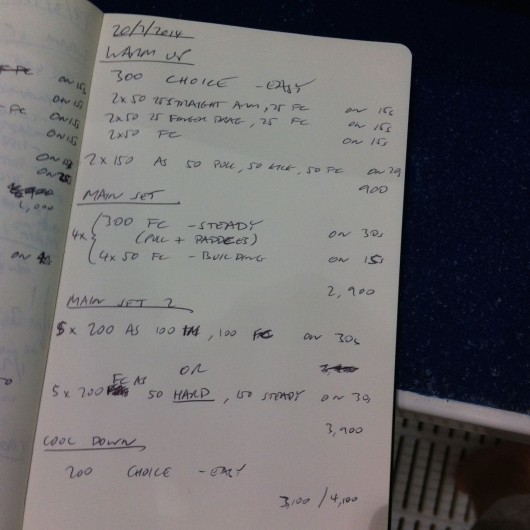 20/2/2014
WARM UP
300 CHOICE - EASY
2x50 25 STRAIGHT ARM, 25 FC ON 15s
2x50 25 FINGER DRAG, 25 FC ON 15s
2x50 FC ON 15s
2x150 AS 50 PULL, 50 KICK, 50 FC ON 20s
900
MAIN SET
4x { 300 FC - STEADY ON 30s
(PULL + PADDLES)
4x50 FC - BUILDING ON 15s
2,900
MAIN SET 2
5x200 AS 100 IM, 100 FC ON 30s
OR
5x200 FC AS 50 HARD, 150 STEADY ON 30s
3,900
COOL DOWN
200 CHOICE - EASY
3,100 / 4,100
FC ON 15s
ON 15s
FC ON 15s
ON 15s
ON 15s
ON
1,000
ON